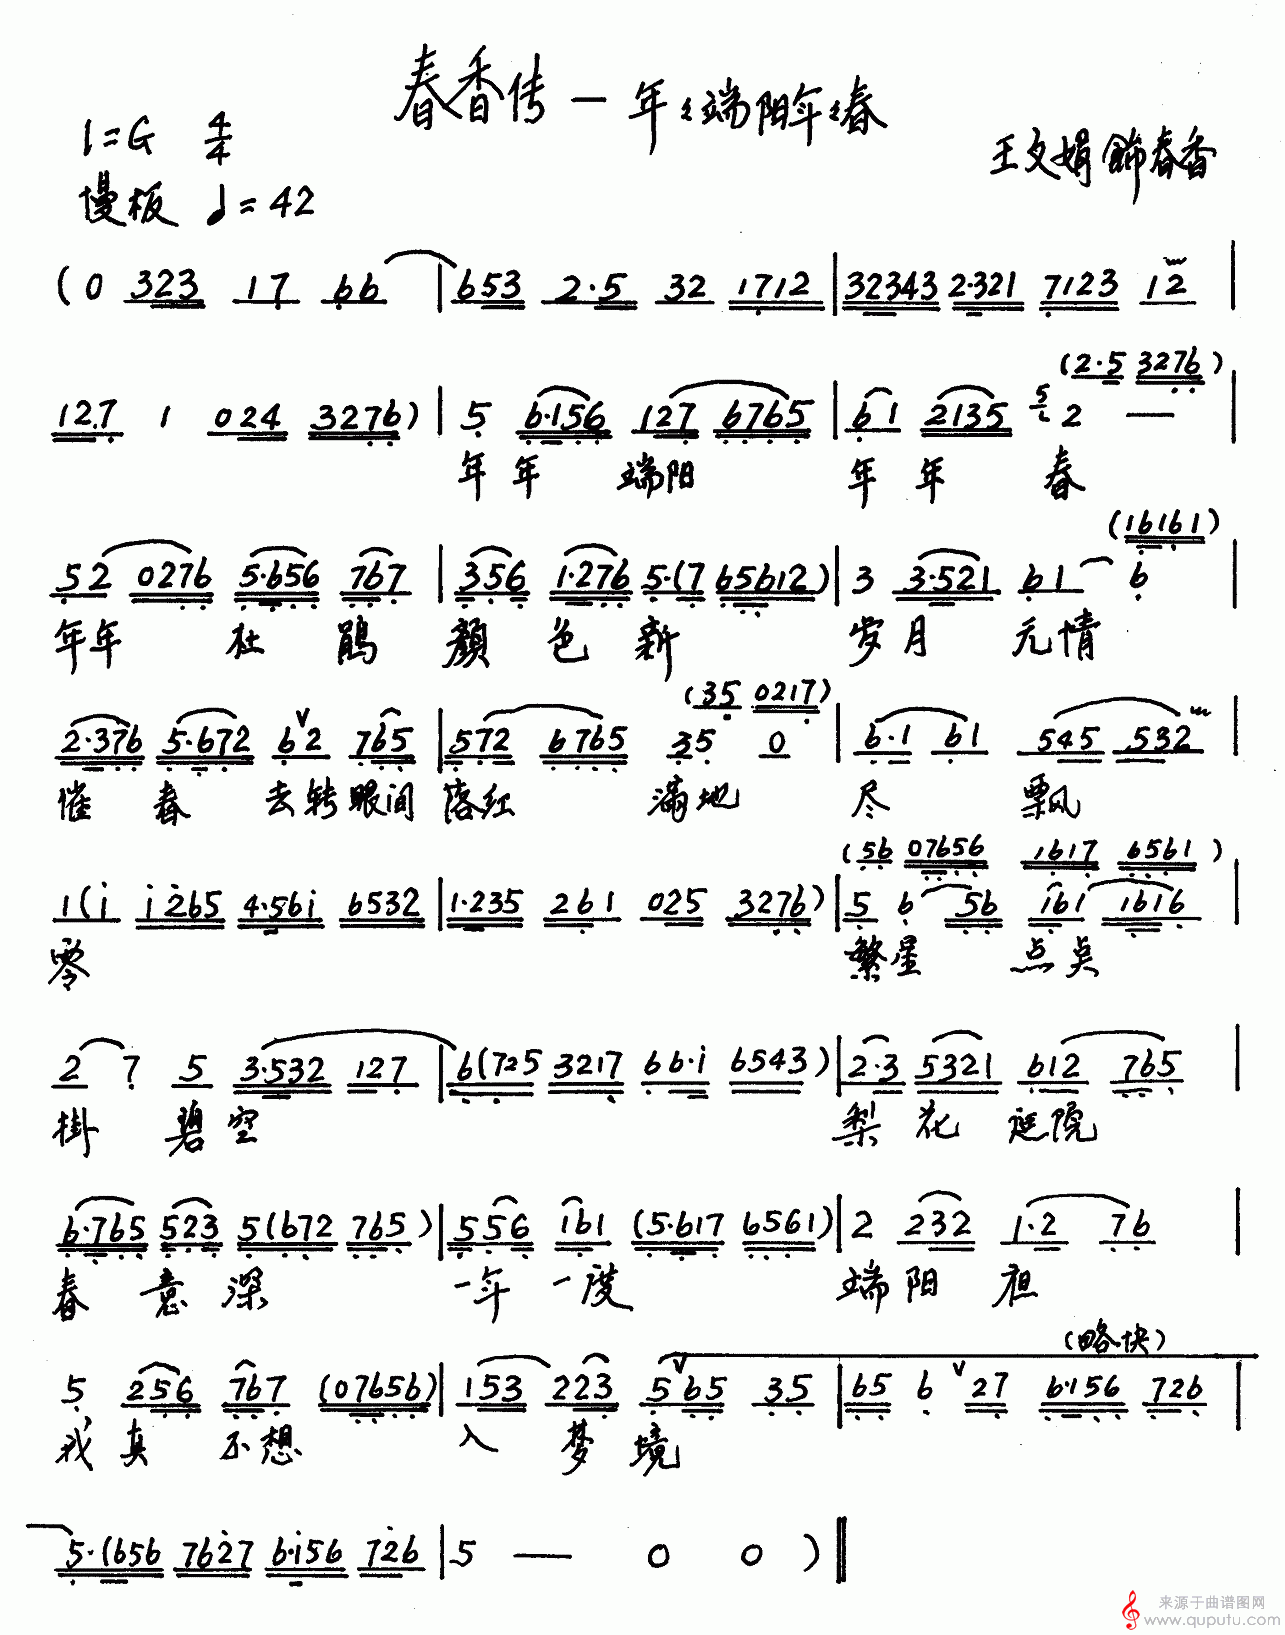 春香传一年々端阳年々春
1=G 4/4
王文娟 飾春香
慢板 ♩=42
(0 323 17 66 | 653 2·5 32 1712 | 32343 2·321 7123 12 |
(2·5 3276)
127 1 024 3276) | 5 6·156 127 6765 | 61 2135 2 — |
年年 端阳 年年 春
(16161)
52 0276 5·656 767 | 356 1·276 5·(7 65612) | 3 3·521 61 6 |
年年 杜鹃 顏色新 岁月无情
(35 0217)
2·376 5·672 62 765 | 572 6765 35 0 | 6·1 61 545 532 |
催春去转眼间 落红 满地 尽 飘
(56 07656 1617 6561)
1(i i265 4·56i 6532 | 1·235 261 025 3276) | 5 6 56 161 1616 |
零 繁星 点点
2 7 5 3·532 127 | 6(725 3217 66·i 6543) | 2·3 5321 612 765 |
掛 碧空 梨花 庭院
6·765 523 5(672 765) | 556 161 (5·617 6561) | 2 232 1·2 76 |
春意深 一年一度 端阳
(略快)
5 256 767 (07656) | 153 223 5 65 35 | 65 6 27 6·156 726 |
我真不想 入梦境
5·(656 7627 6·i56 726 | 5 — 0 0 )
来源于曲谱图网
www.quputu.com